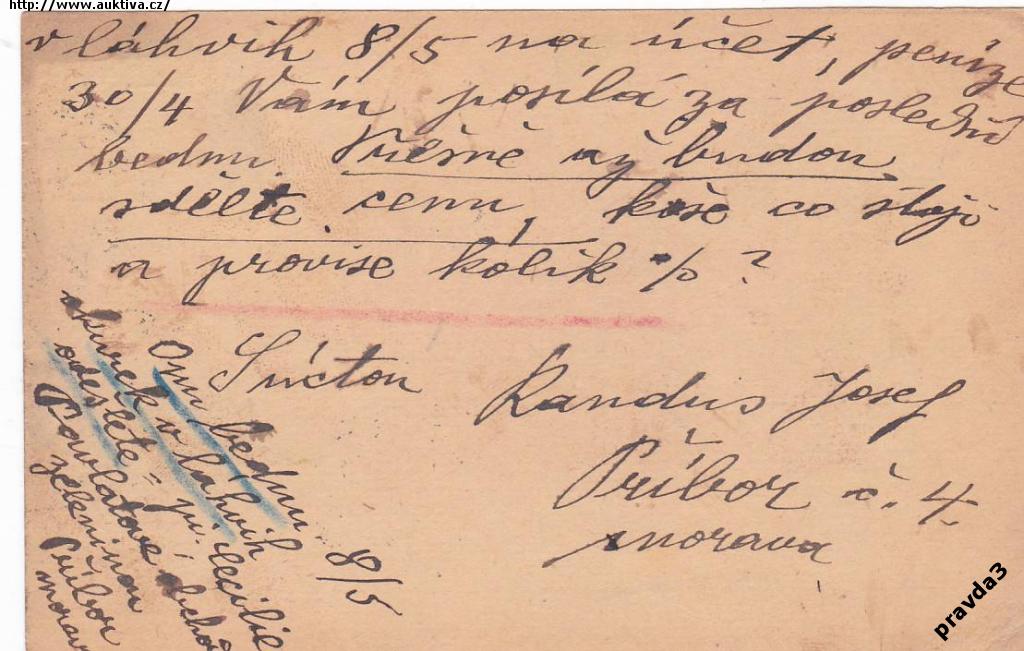 http://www.auktiva.cz/
v láhvih 8/5 na účet, peníze
30/4 Vám posílá za poslední
bednu. až budou
sdělte cenu, koše co stojí
a provise kolik % ?
Súctou
Randus Josef
Příbor č. 4.
morava
8/5
Onu bednu
okurek v láhvih
odešlete pí.
Pavlátove obchod
zeleninou
Příbor
morava
pravda3